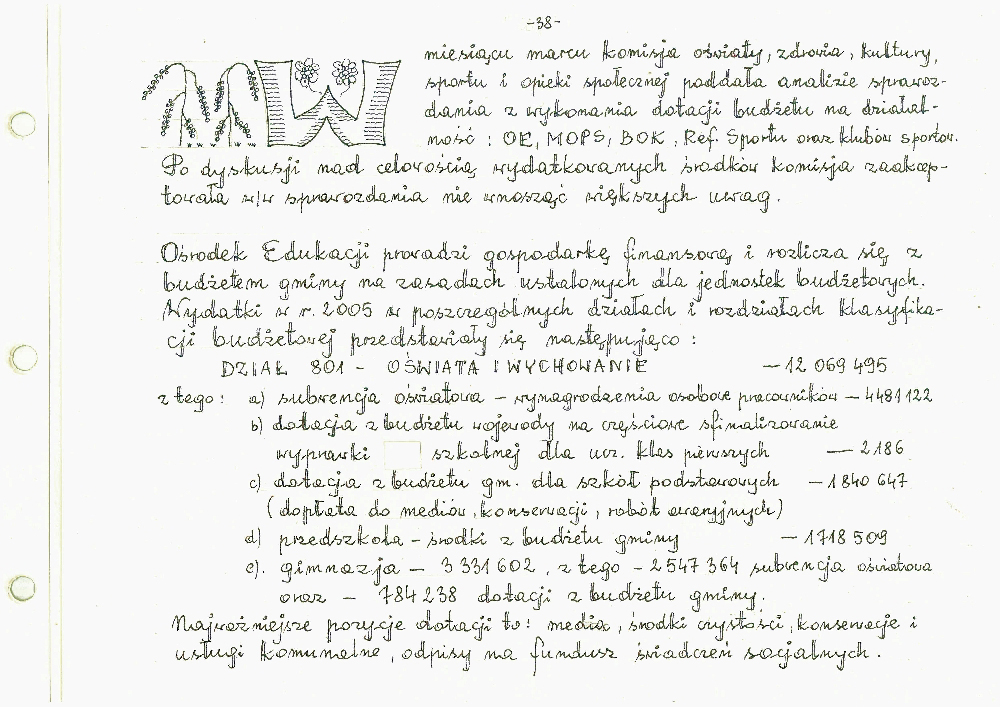 -38-
W miesiącu marcu Komisja oświaty, zdrowia, kultury,
sportu i opieki społecznej poddała analizie sprawoz-
dania z wykonania dotacji budżetu na działal-
ność : OE, MOPS, BOK, Ref. Sportu oraz klubów sportow.
Po dyskusji nad celowością wydatkowanych środków komisja zaakcep-
towała w/w sprawozdania nie wnosząć większych uwag.
Ośrodek Edukacji prowadzi gospodarkę finansową i rozlicza się z
budżetem gminy na zasadach ustalonych dla jednostek budżetowych.
Wydatki w r. 2005 w poszczególnych działach i rozdziałach klasyfika-
cji budżetowej przedstawiały się następująco :
DZIAŁ 801 - OŚWIATA I WYCHOWANIE — 12 069 495
z tego : a) subwencja oświatowa – wynagrodzenia osobowe pracowników – 4481 122
b) dotacja z budżetu wojewody na częściowe sfinalizowanie
wyprawki szkolnej dla ucz. klas pierwszych — 2186
c) dotacja z budżetu gm. dla szkół podstawowych – 1 840 647
( dopłata do mediów, konserwacji, robót awaryjnych )
d) przedszkola – środki z budżetu gminy – 1718 509
e). gimnazja – 3 331 602, z tego – 2 547 364 subwencja oświatowa
oraz – 784 238 dotacji z budżetu gminy.
Najważniejsze pozycje dotacji to : media, środki czystości, konserwacje i
usługi komunalne, odpisy na fundusz świadczeń socjalnych.